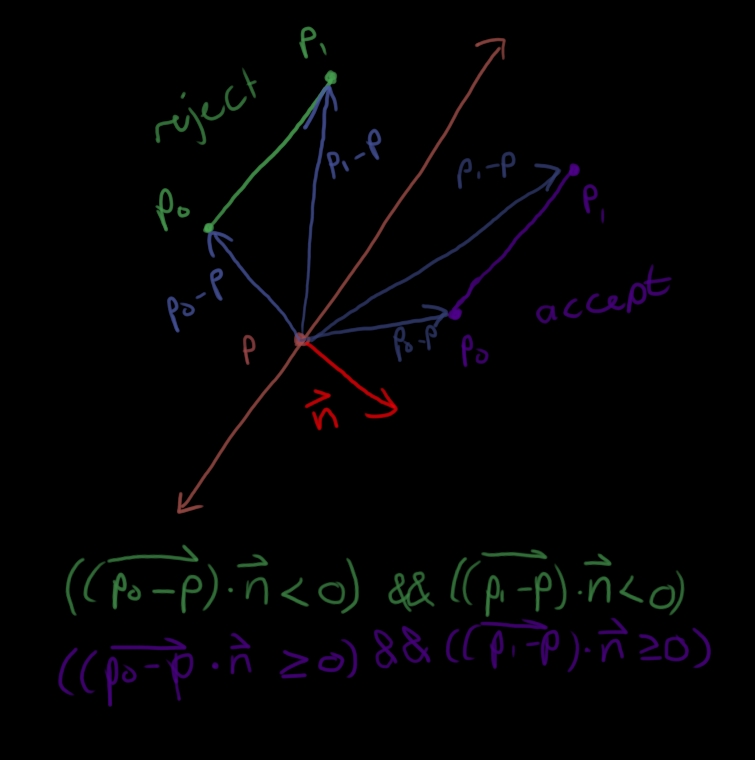 P₁
reject
P₁-P
P₁-P
P₁
P₀
P₀-P
accept
P₀-P
P₀
P
n⃗
((p₀-p)·n⃗<0) && ((p₁-p)·n⃗<0)
((p₀-p·n⃗ ≥0) && ((p₁-p)·n⃗ ≥0)